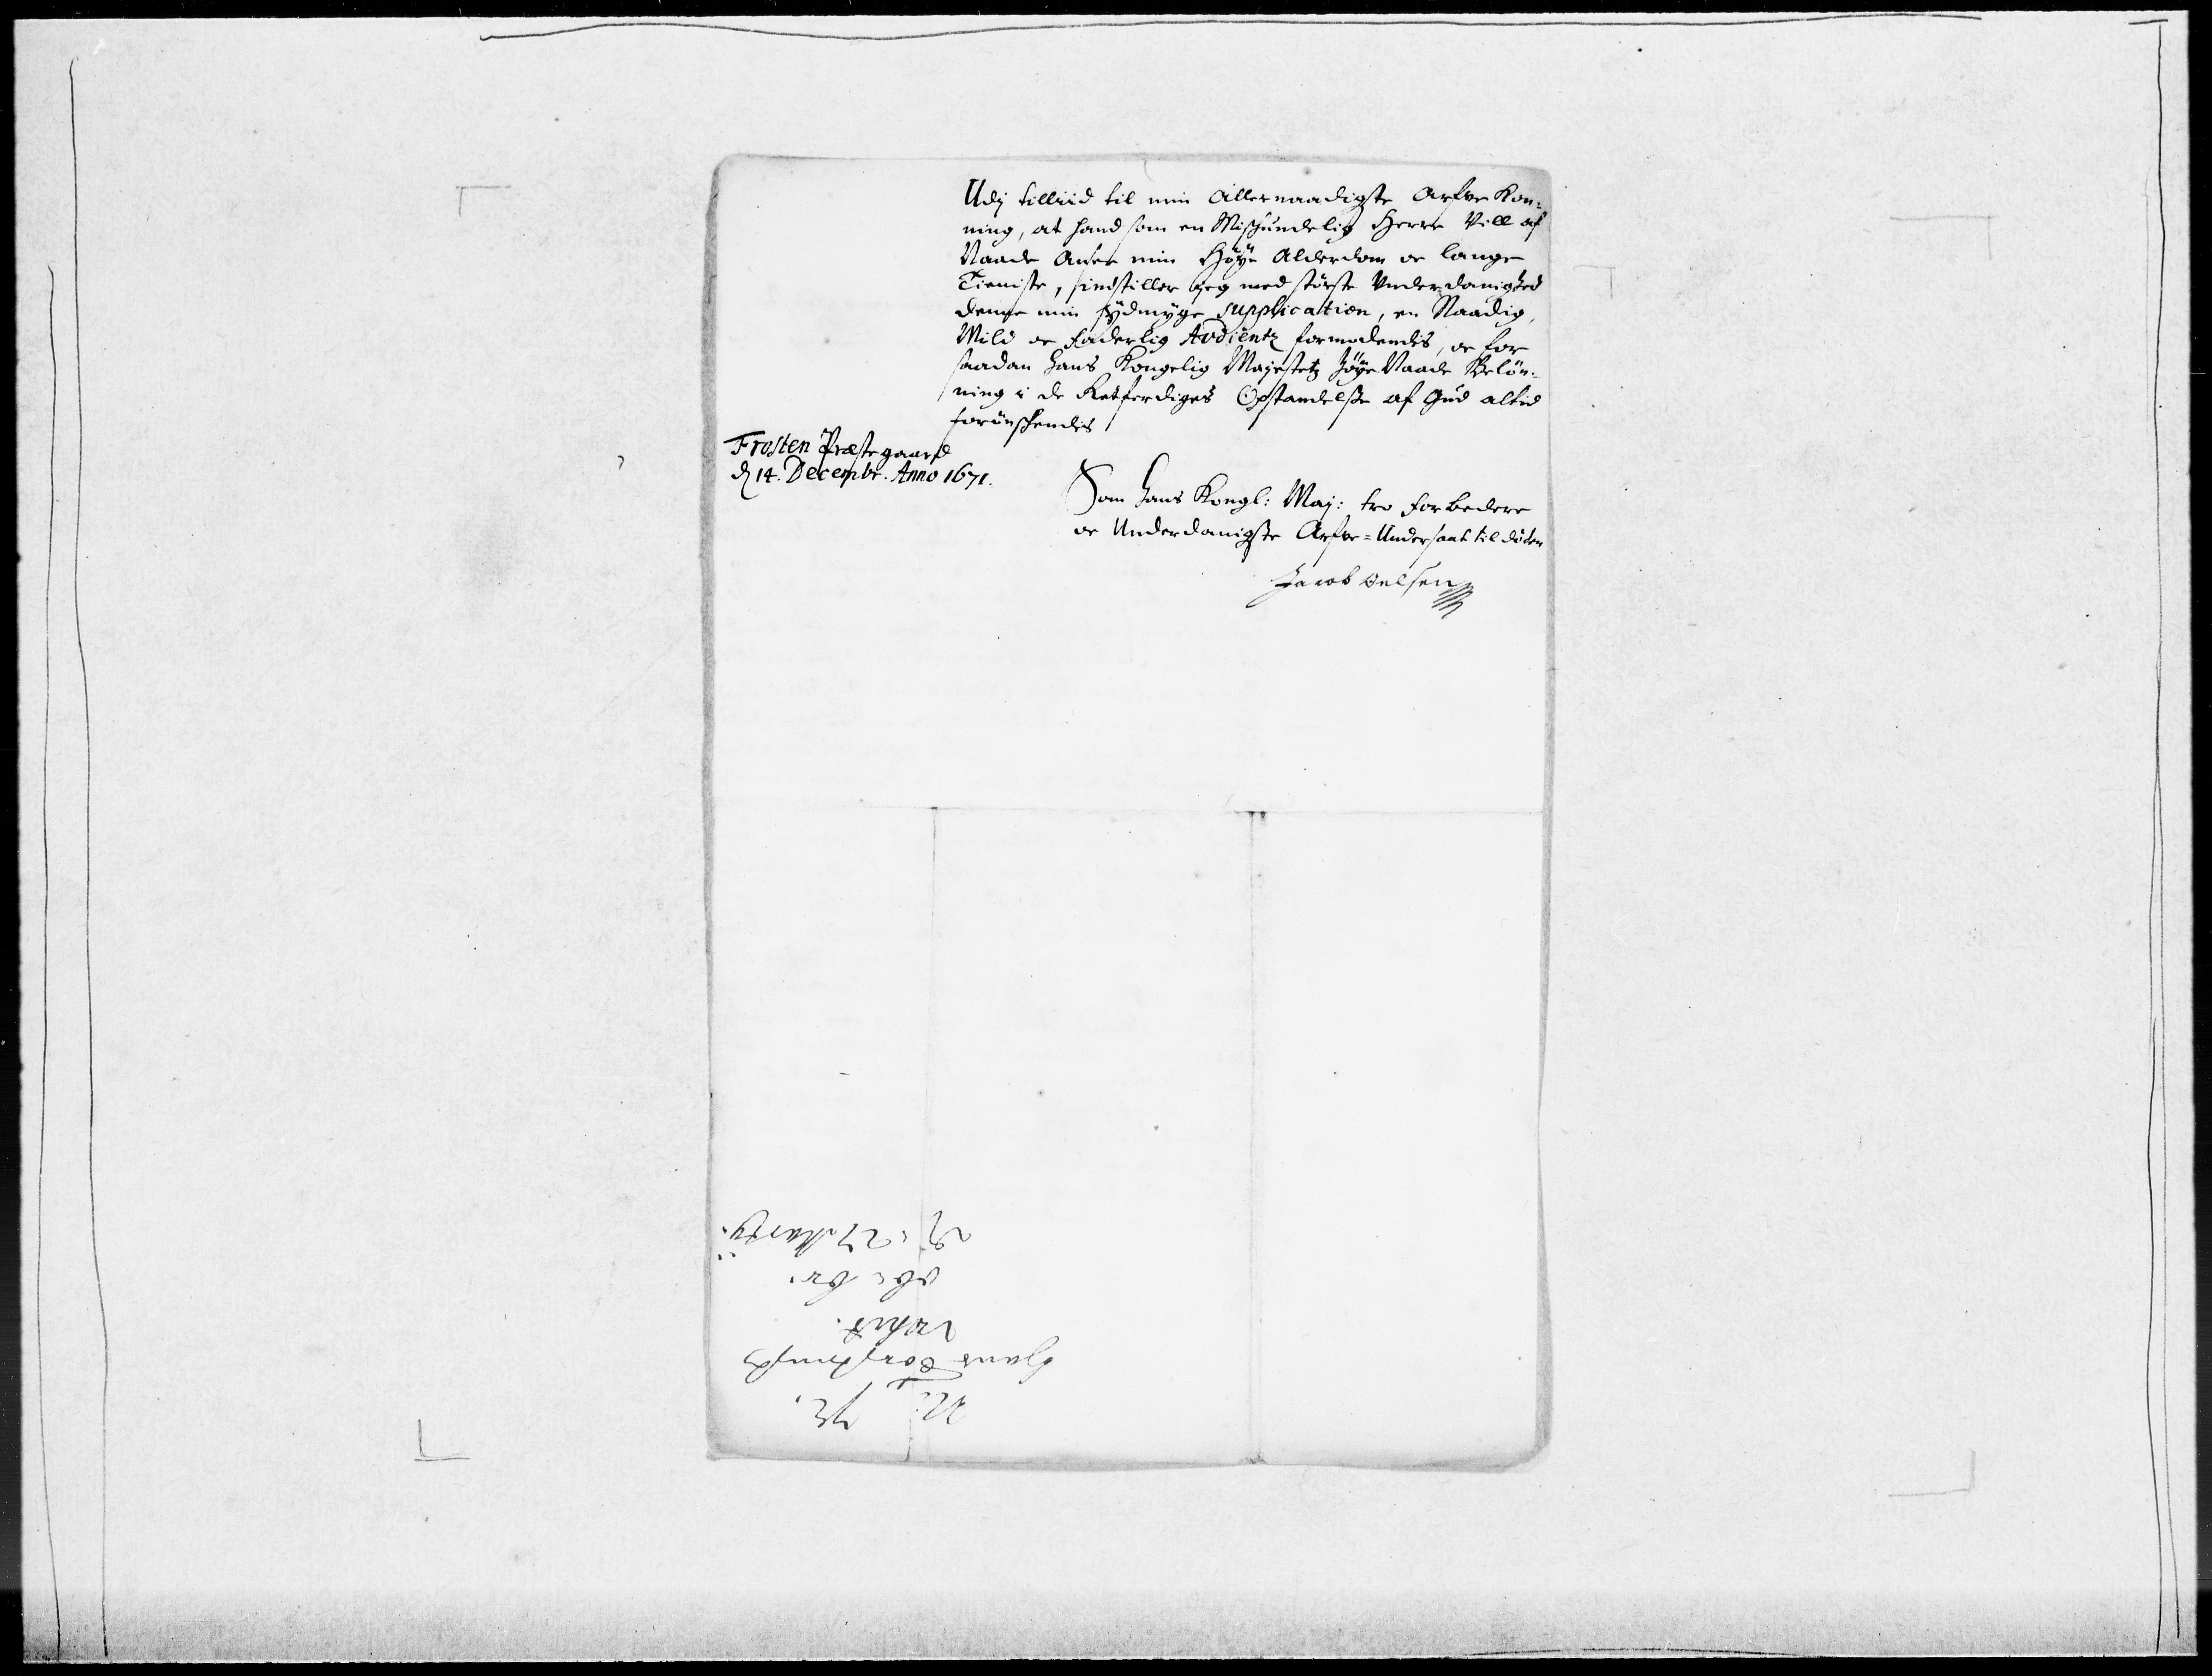 Udj tilliid til min Allernaadigste Arfve Kon=
ning, at hand som en Miskundelig Herre Vill af
Naade Ansee min Höÿe Alderdom oc lange
Tieniste, hindstiller jeg med störste Underdanighed
denne min hÿdmyge supplication, en Naadig,
Mild oc faderlig Audientz formodendis, oc for
saadan hans Kongelig Majestetz höÿe Naade Belön=
ning i de Retferdiges Opstandelsse af Gud altid
forünskendis
Frosten Præstegaard
d 14. Decembr. Anno 1671.
Som hans Kongl: Maj: tro forbedere
oc Underdanigste Arfve=Undersaat til döden
Jacob Oelsen
N: 72.
Hans
27 Martÿ.